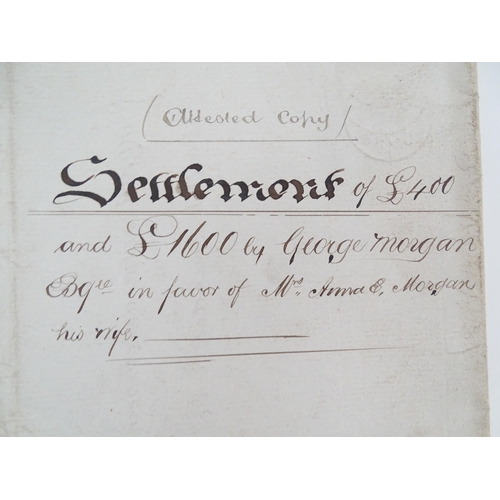 (Attested Copy)
Settlement of £400
and £1600 by George Morgan
Esqre in favor of Mrs Anna E. Morgan
his wife.